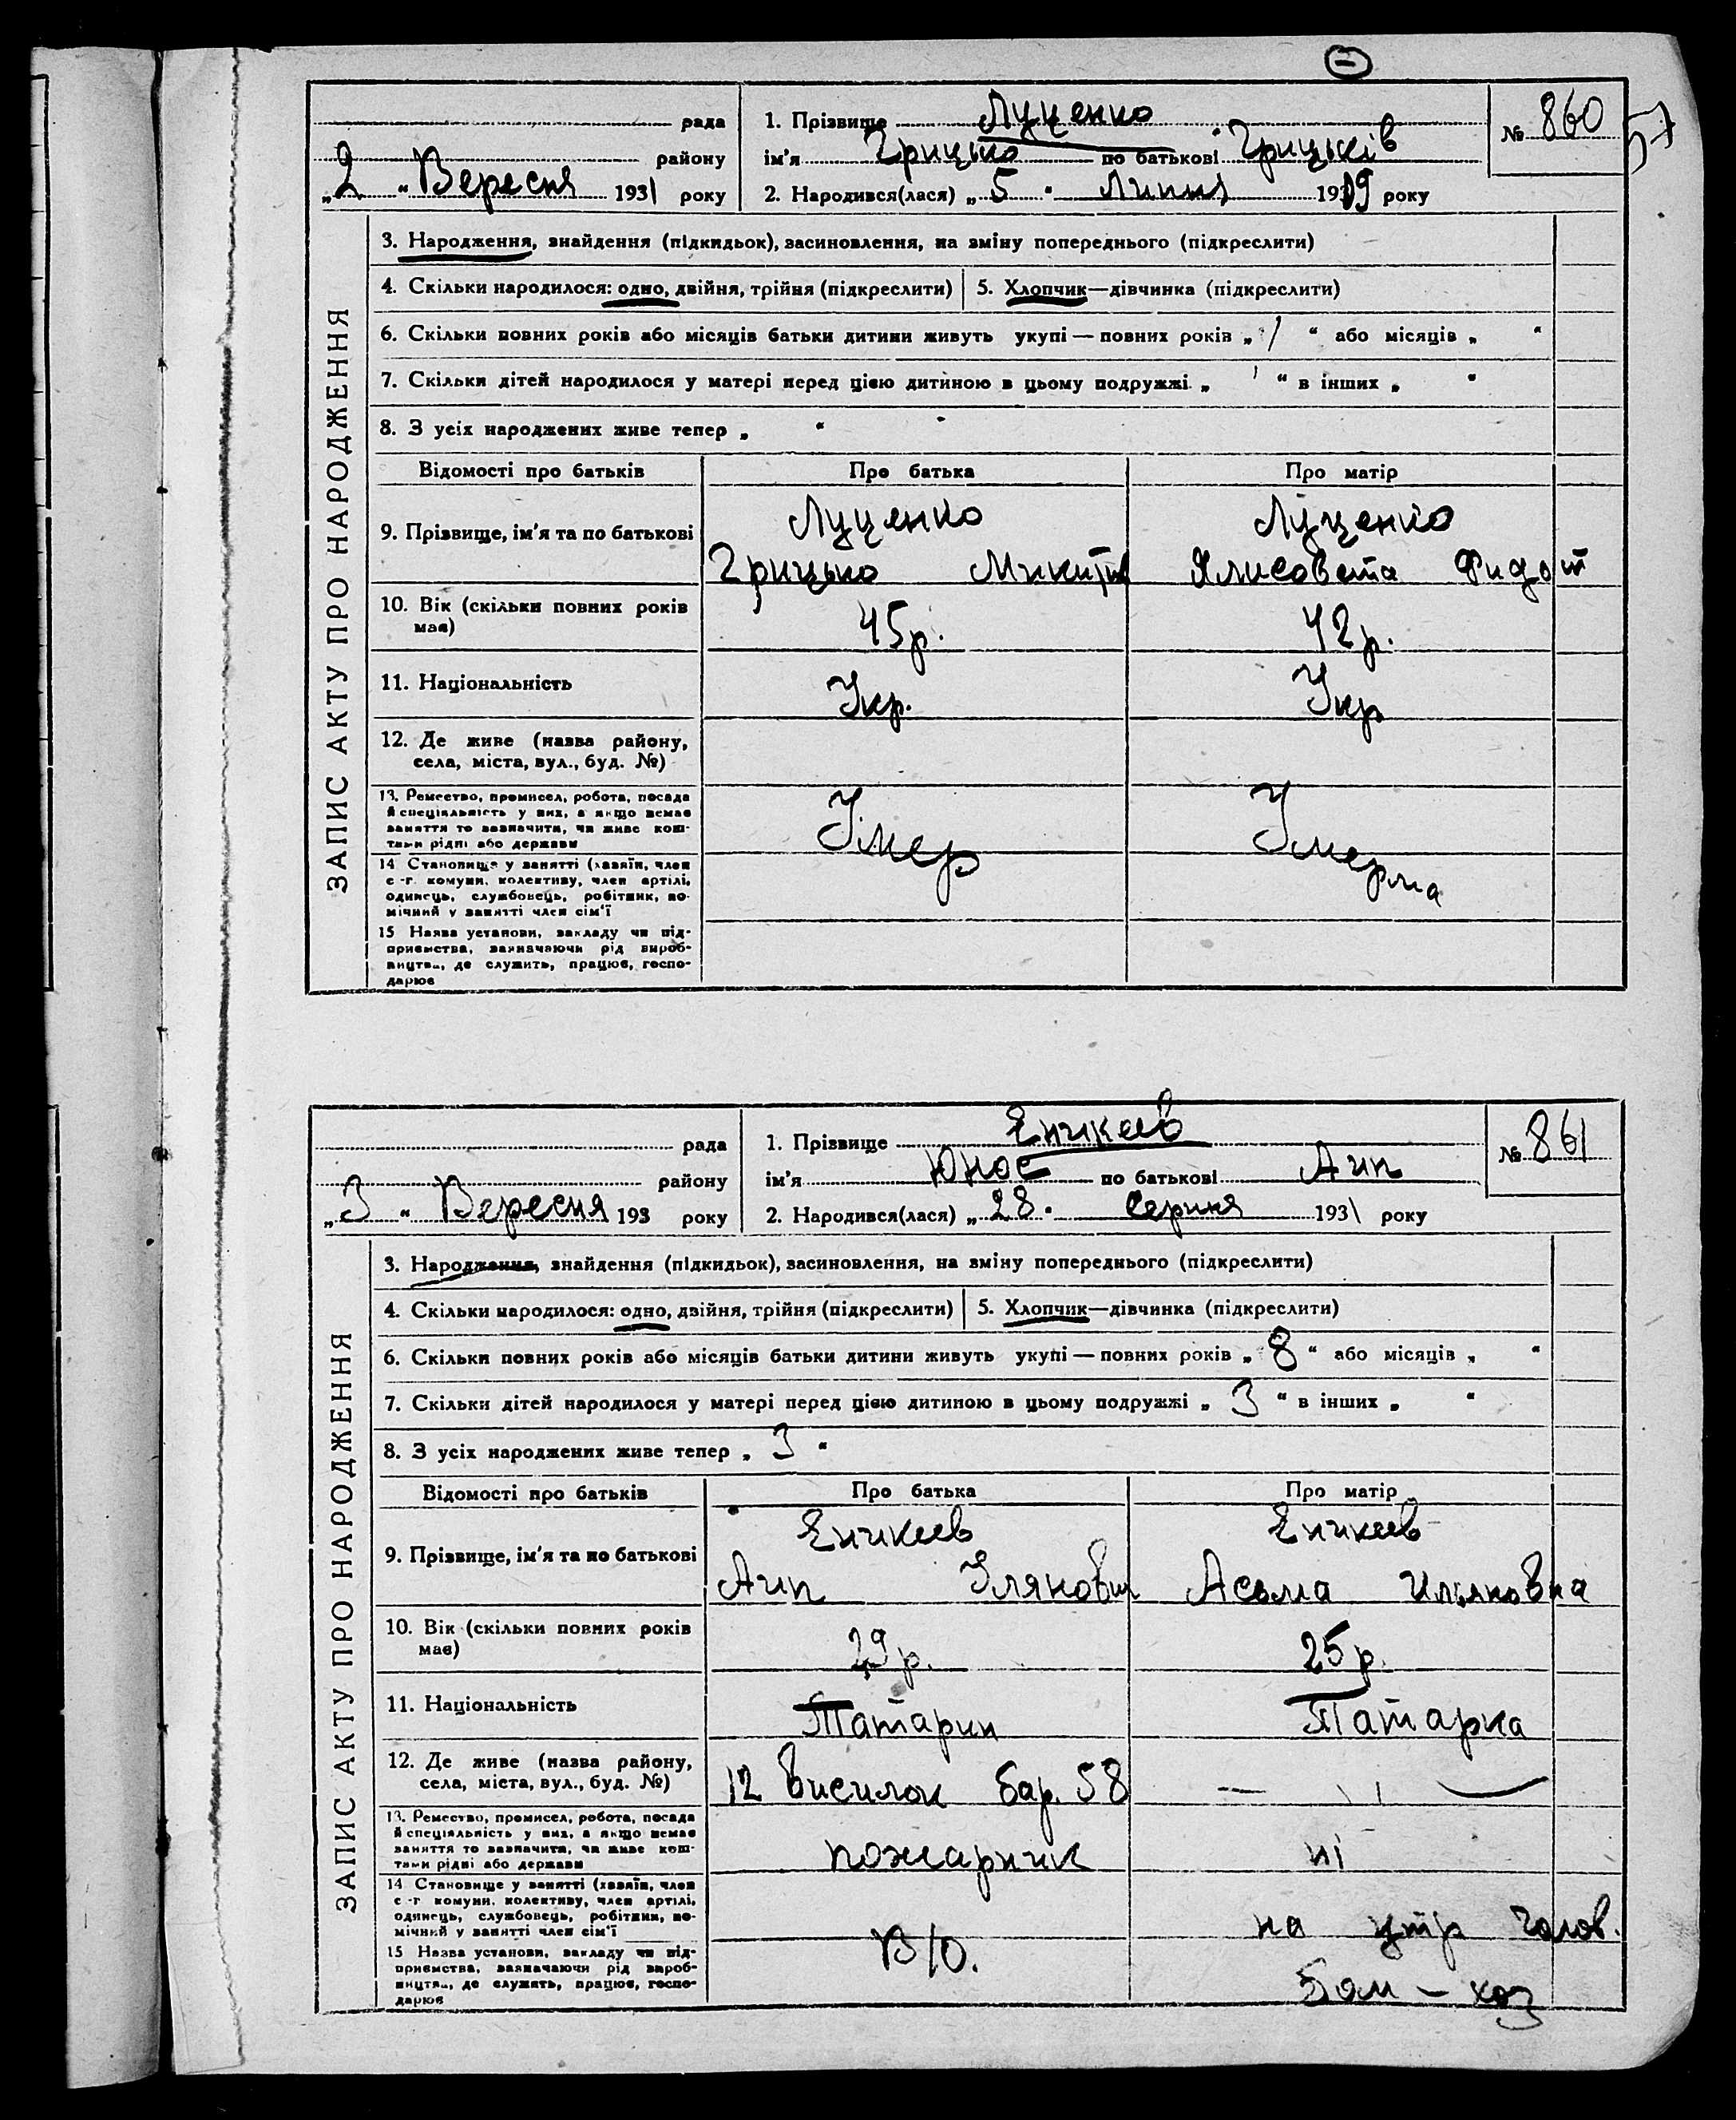 рада
району
„2“ Вересня 1931 року
1. Прізвище Луценко
ім'я Грицько по батькові Грицьків
2. Народився(лася) „5“ Липня 1919 року
№ 860
57
ЗАПИС АКТУ ПРО НАРОДЖЕННЯ
3. Народження, знайдення (підкидьок), засиновлення, на зміну попереднього (підкреслити)
4. Скільки народилося: одно, двійня, трійня (підкреслити)
5. Хлопчик—дівчинка (підкреслити)
6. Скільки повних років або місяців батьки дитини живуть укупі — повних років „ “ або місяців „ “
7. Скільки дітей народилося у матері перед цією дитиною в цьому подружжі „ “ в інших „ “
8. З усіх народжених живе тепер „ “
Відомості про батьків Про батька Про матір
9. Прізвище, ім'я та по батькові
Луценко Луценко
Грицько Микитів Ялисовета Фидот
10. Вік (скільки повних років має)
45р. 42р.
11. Національність
Укр. Укр
12. Де живе (назва району, села, міста, вул., буд. №)
13. Ремество, промисел, робота, посада
й спеціяльність у них, а якщо немає
заняття то зазначити, чи живе кош-
тами рідні або держави
Умер Умерла
14 Становище у занятті (хазяїн, член
с.-г. комуни, колективу, член артілі,
одинець, службовець, робітник, по-
мічний у занятті член сім'ї
15 Назва установи, закладу чи під-
приємства, зазначаючи рід вироб-
ництва, де служить, працює, госпо-
дарює
рада
району
„3“ Вересня 193 року
1. Прізвище Еникеев
ім'я Юнос по батькові Агип
2. Народився(лася) „28“ Серпня 1931 року
№ 861
ЗАПИС АКТУ ПРО НАРОДЖЕННЯ
3. Народження, знайдення (підкидьок), засиновлення, на зміну попереднього (підкреслити)
4. Скільки народилося: одно, двійня, трійня (підкреслити)
5. Хлопчик—дівчинка (підкреслити)
6. Скільки повних років або місяців батьки дитини живуть укупі — повних років „8“ або місяців „ “
7. Скільки дітей народилося у матері перед цією дитиною в цьому подружжі „3“ в інших „ “
8. З усіх народжених живе тепер „3“
Відомості про батьків Про батька Про матір
9. Прізвище, ім'я та по батькові
Еникеев Еникеев
Ільяновна
10. Вік (скільки повних років має)
29р. 25р.
11. Національність
Татарин Татарка
12. Де живе (назва району, села, міста, вул., буд. №)
12 висилок бар. 58 — 11 —
13. Ремество, промисел, робота, посада
й спеціяльність у них, а якщо немає
заняття то зазначити, чи живе кош-
тами рідні або держави
пожарник ні
14 Становище у занятті (хазяїн, член
с.-г. комуни, колективу, член артілі,
одинець, службовець, робітник, по-
мічний у занятті член сім'ї
на утр чолов.
15 Назва установи, закладу чи під-
приємства, зазначаючи рід вироб-
ництва, де служить, працює, госпо-
дарює
В/О.